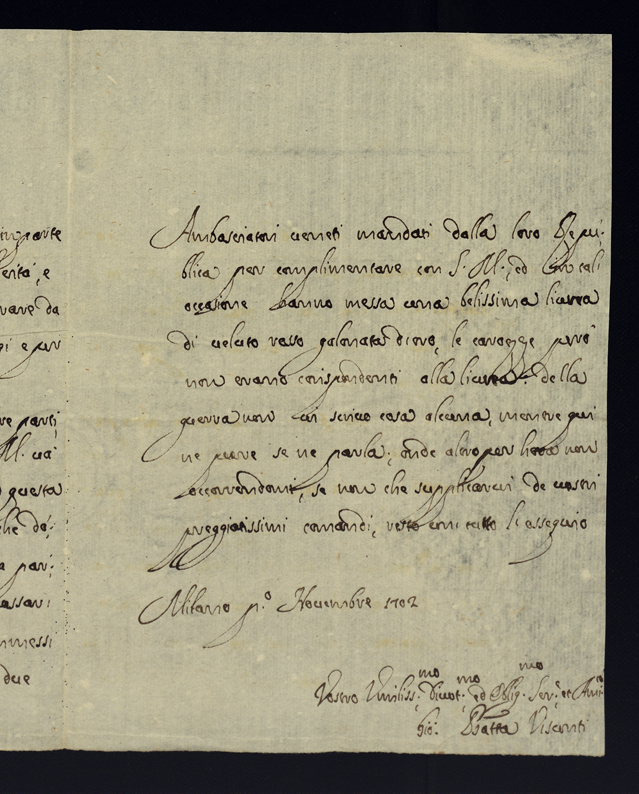 in parte
erità, e
ovare da
gi e pur
re parti,
M. và
questa
che dà:
a par:
assar:
messi
due
Ambasciatori veneti mandati dalla loro Repu:
blica per complimentare con S. M., ed in tali
occasione hanno messa una belissima liurea
di veluto rosso galonata d'oro, le carozze però
non erano corispondenti alla liurea: della
guerra non vi scrivo cosa alcuna, mentre qui
ne pure se ne parla; onde altro per hora non
occorrendomi, se non che supplicarvi de vostri
preggiatissimi comandi, resto con tutto l'esseguio
Milano p.º Novembre 1702
Vostro Umiliss:mo Divot:mo ed Oblig:mo Ser:e et Am:co
Gio: Batta Visconti